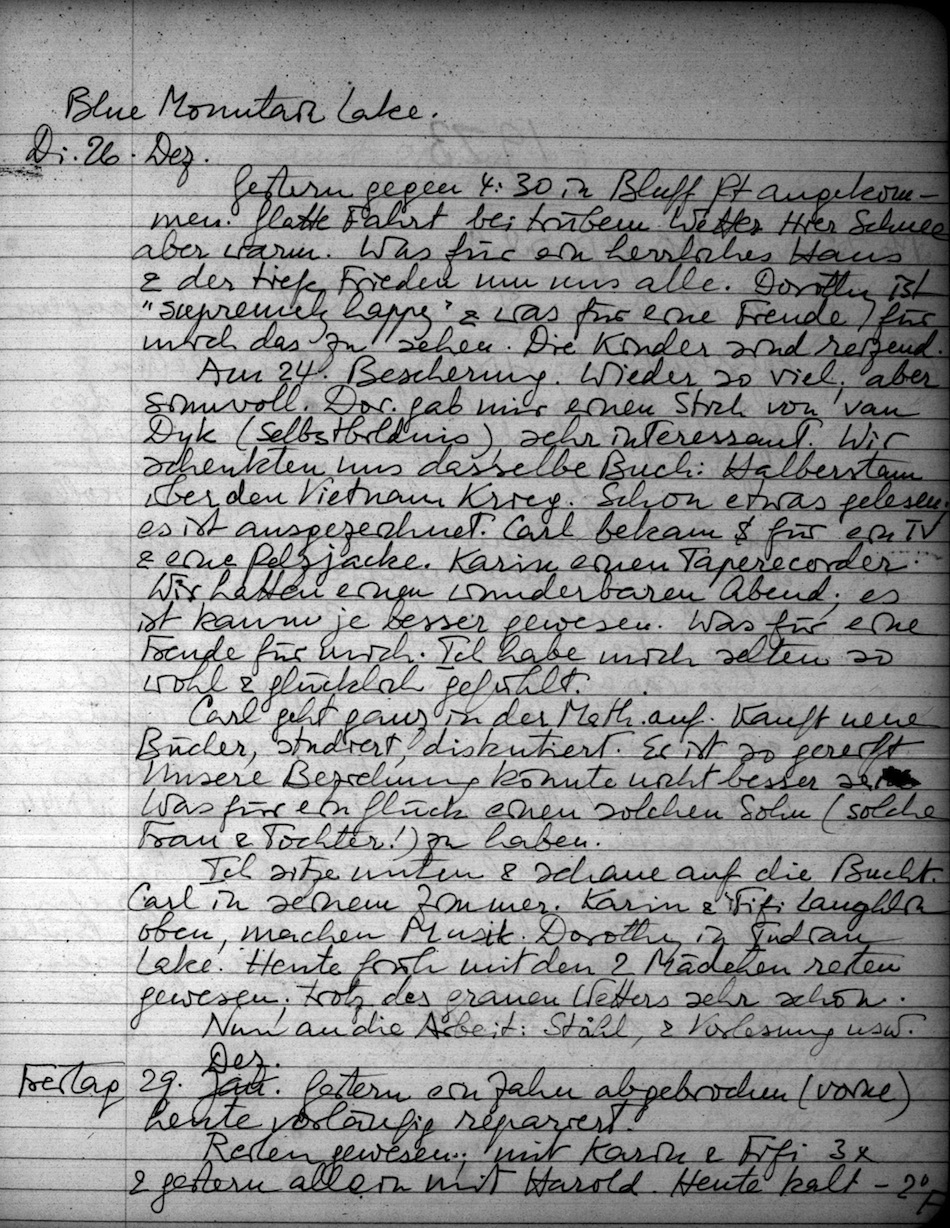 Blue Mountain Lake.
Di. 26. Dez.
Gestern gegen 4:30 in Bluff Pt angekom-
men. Glatte Fahrt bei trübem Wetter Hier Schnee
aber warm. Was für ein herrliches Haus
& der tiefe Frieden um uns alle. Dorothy ist
"supremely happy" & was für eine Freude für
mich das zu sehen. Die Kinder sind reizend.
Am 24. Bescherung. Wieder so viel, aber
sinnvoll. Dor. gab mir einen Stich von van
Dyk (Selbstbildnis) sehr interessant. Wir
schenkten uns dasselbe Buch: Halberstam
über den Vietnam Krieg. Schon etwas gelesen,
es ist ausgezeichnet. Carl bekam $ für ein TV
& eine Pelzjacke. Karin einen Taperecorder.
Wir hatten einen wunderbaren Abend, es
ist kaum je besser gewesen. Was für eine
Freude für mich. Ich habe mich selten so
wohl & glücklich gefühlt.
Carl geht ganz in der Math. auf. Kauft neue
Bücher, studiert, diskutiert. Er ist so gereift
Unsere Beziehung könnte nicht besser sein
Was für ein Glück einen solchen Sohn (solche
Frau & Tochter!) zu haben.
Ich sitze unten & schaue auf die Bucht.
Carl in seinem Zimmer. Karin & Fifi Laughlin
oben, machen Musik. Dorothy in Indian
Lake. Heute früh mit den 2 Mädchen reiten
gewesen, trotz des grauen Wetters sehr schön.
Nun an die Arbeit: Stahl, & Vorlesung usw.
Dez.
Freitag 29. Jan. Gestern ein Zahn abgebrochen (vorne)
heute vorläufig repariert.
Reiten gewesen; mit Karin & Fifi 3x
& gestern allein mit Harold. Heute kalt – 2° F